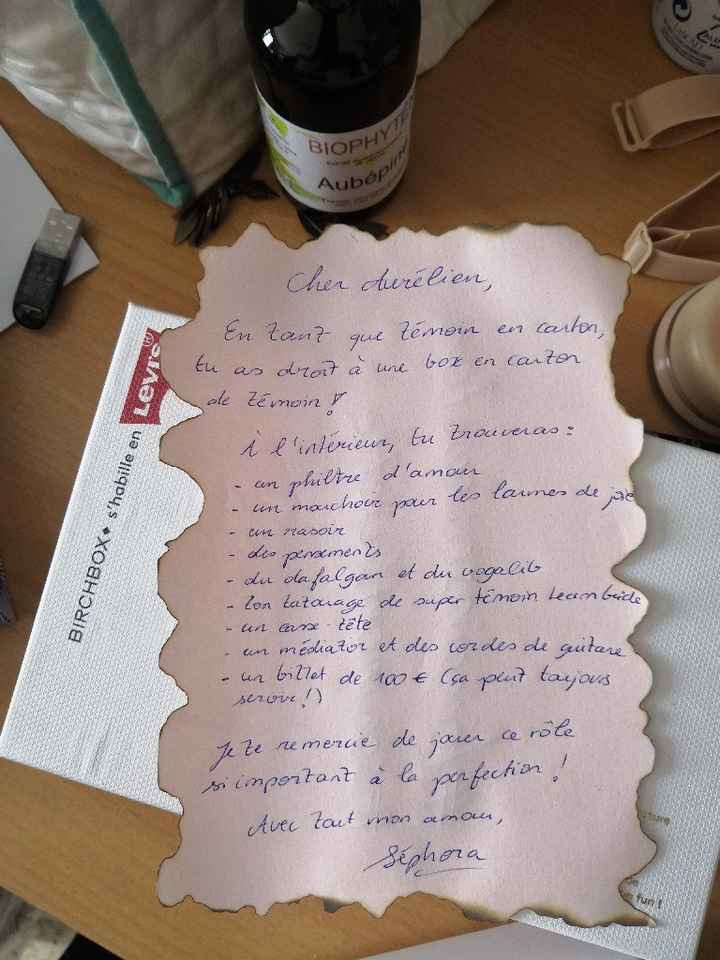 BIOPHYTE
Aubépin
Cher Aurélien,
En tant que témoin en carton,
tu as droit à une box en carton
de témoin !
À l'intérieur, tu trouveras :
- un philtre d'amour
- un mouchoir pour les larmes de joie
- un rasoir
- des pansements
- du dafalgan et du vogalib
- ton tatouage de super témoin team bride
- un casse-tête
- un médiator et des cordes de guitare
- un billet de 100 € (ça peut toujours
servir !)
Je te remercie de jouer ce rôle
si important à la perfection !
Avec tout mon amour,
Séphora
Levi's®
BIRCHBOX s'habille en
fun !